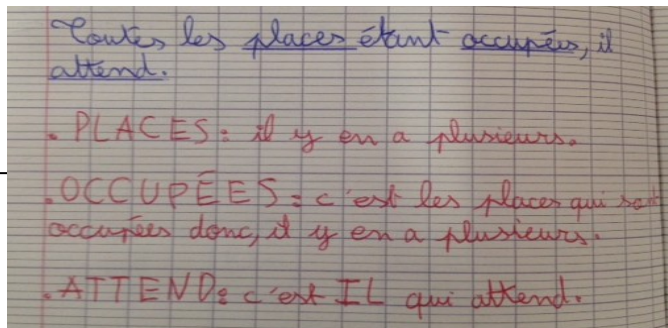 Toutes les places étant occupées, il
attend.
. PLACES : il y en a plusieurs.
. OCCUPÉES : c'est les places qui sont
occupées donc, il y en a plusieurs.
. ATTEND : c'est IL qui attend.